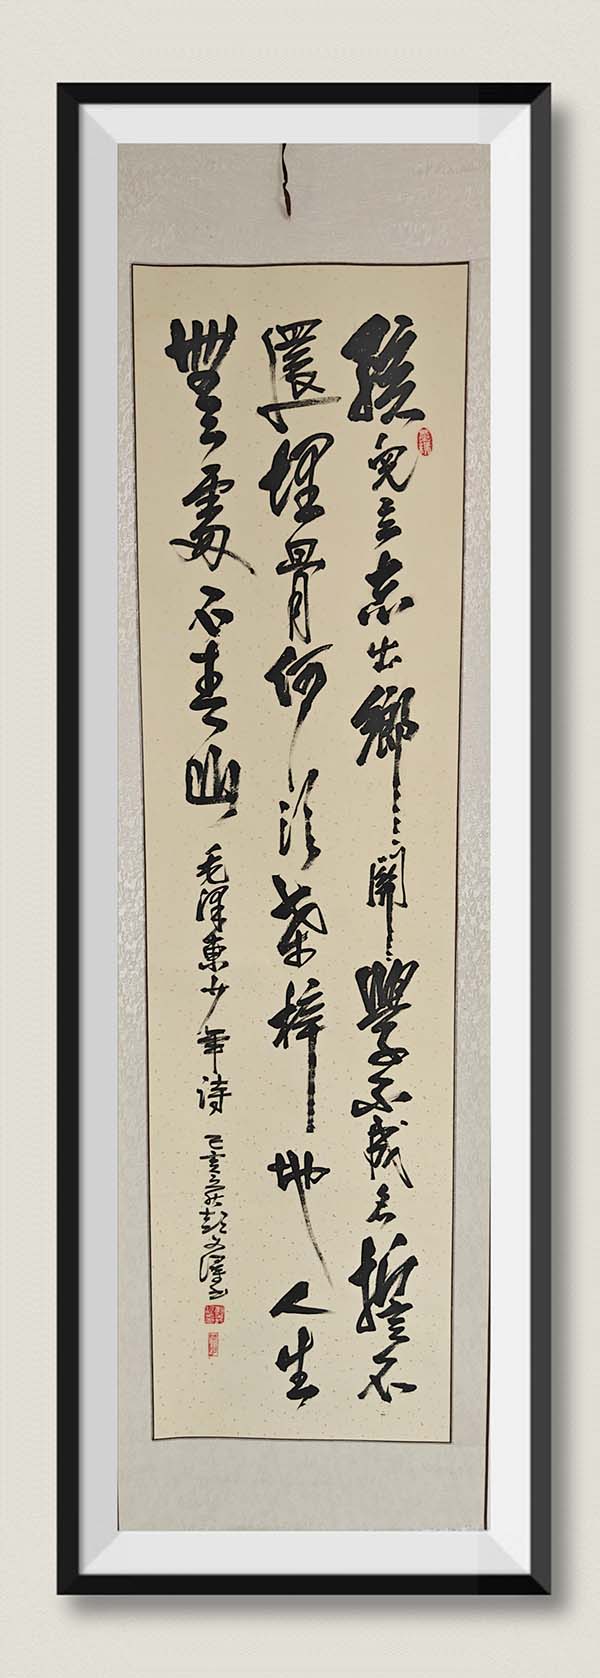 孩兒立志出鄉關學不成名誓不
還埋骨何須桑梓地人生
無處不青山
毛澤東少年詩
己亥秋彭文